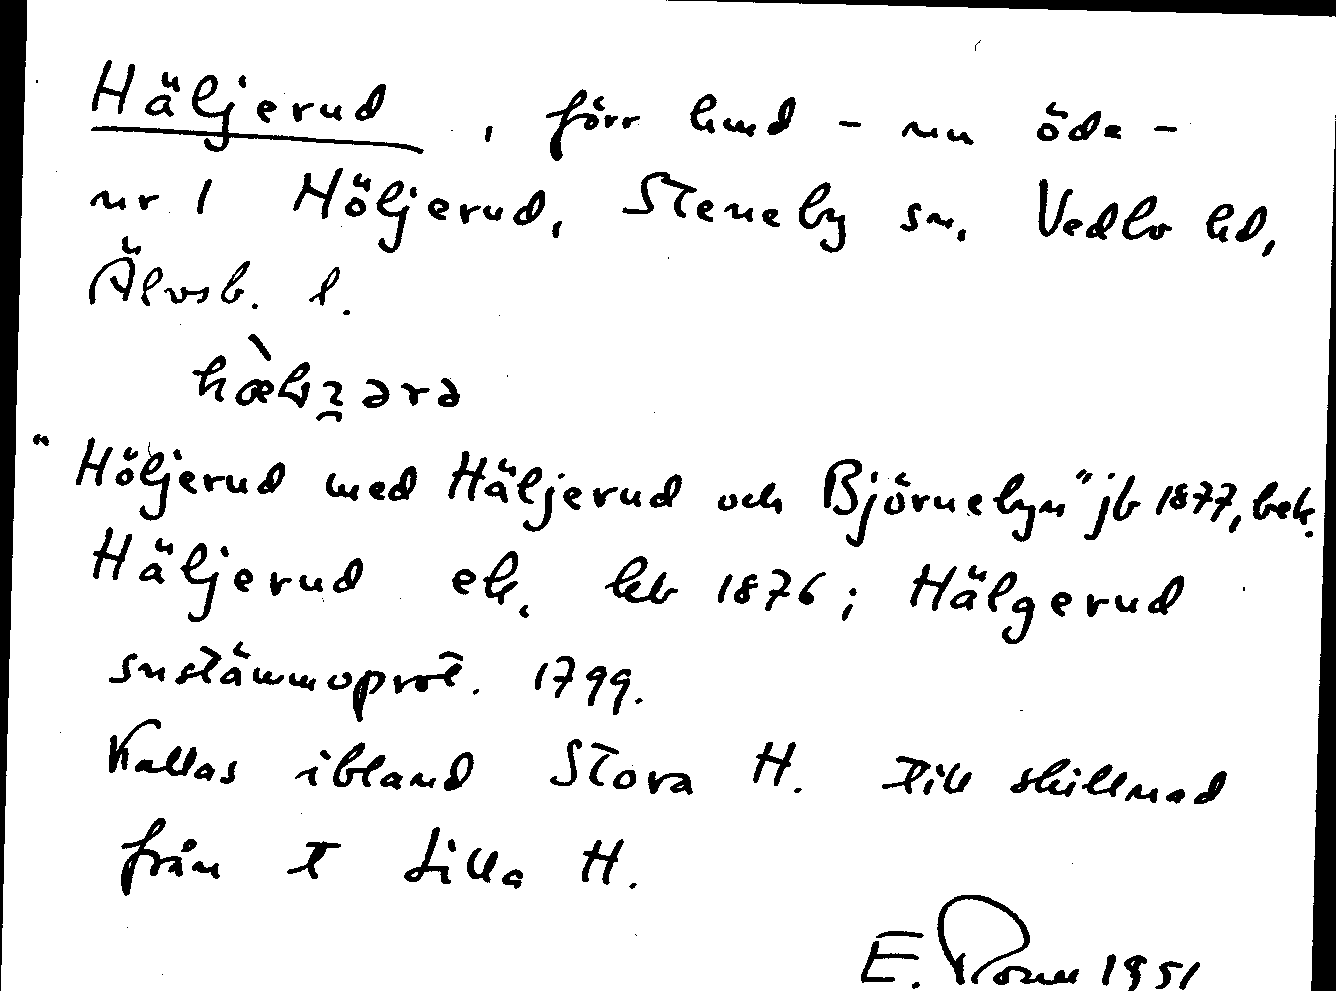 Häljerud, förr hmd - nu öde -
nr 1 Höljerud, Steneby sn, Vedbo hd,
Älvsb. l.
"Höljerud med Häljerud och Björnebyn" jb 1877, bek.
Häljerud ek. kb 1876; Hälgerud
snstämmoprot. 1799.
Kallas ibland Stora H. till skillnad
från Lilla H.
E. 1951